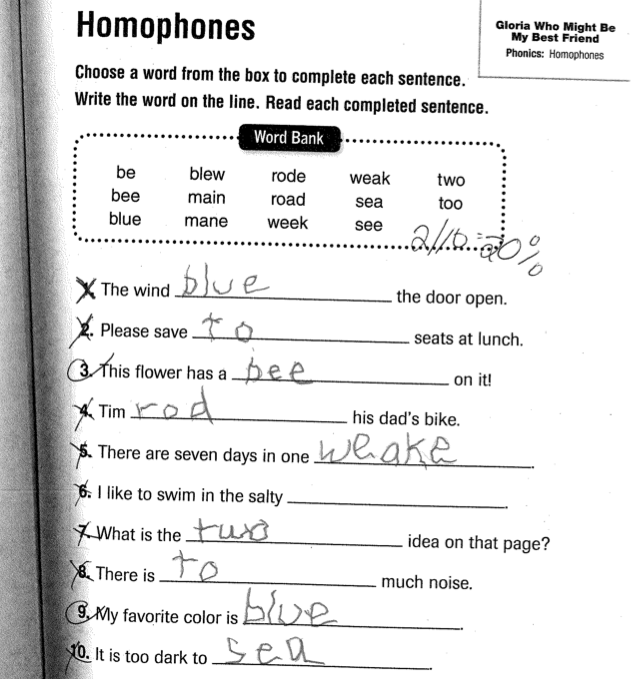 Homophones
Gloria Who Might Be
My Best Friend
Phonics: Homophones
Choose a word from the box to complete each sentence.
Write the word on the line. Read each completed sentence.
Word Bank
be blew rode weak two
bee main road sea too
blue mane week see
2/10 = 20%
1. The wind blue the door open.
2. Please save to seats at lunch.
3. This flower has a bee on it!
4. Tim rod his dad's bike.
5. There are seven days in one weake.
6. I like to swim in the salty .
7. What is the two idea on that page?
8. There is to much noise.
9. My favorite color is blue.
10. It is too dark to sea.